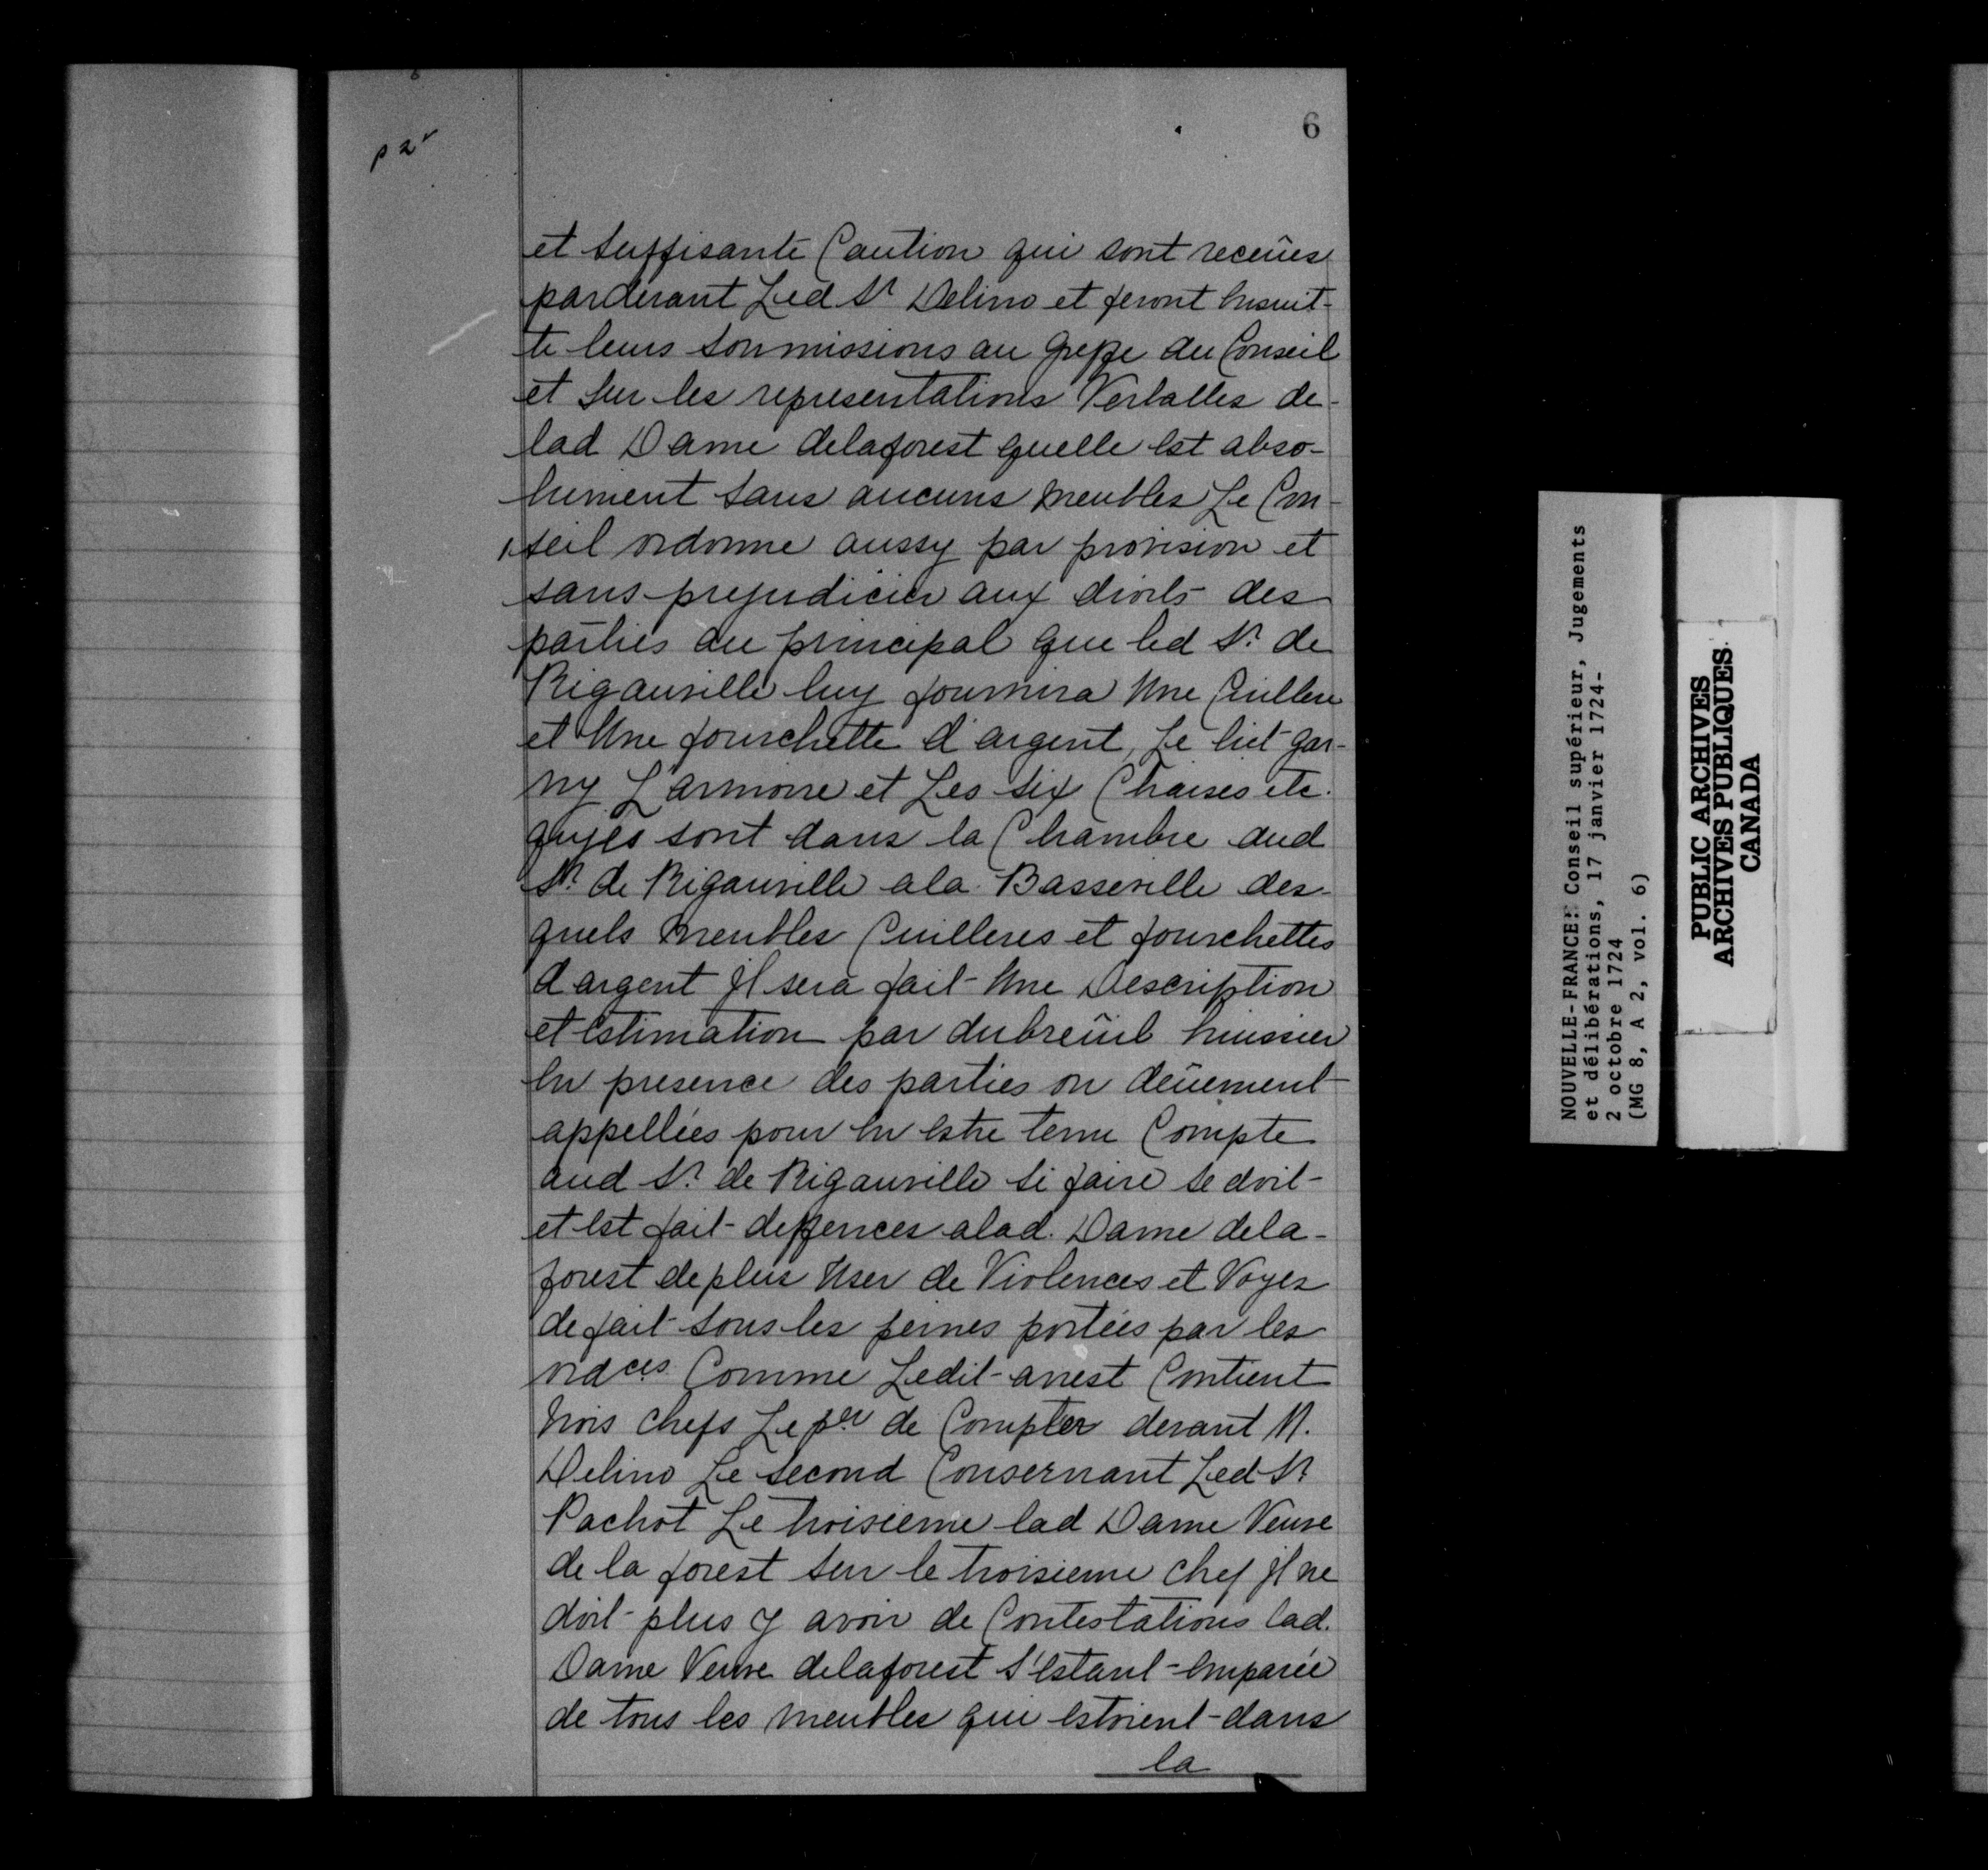 6
p 2v
et suffisante Caution qui sont receües
pardevant Led Sr Delino et feront Ensuit-
te leurs soumissions au greffe du Conseil
et sur les representations Verballes de
lad Dame delaforest quelle Est abso-
lument sans aucuns meubles Le Con-
seil ordonne aussy par provision et
sans prejudicier aux droits des
parties au principal que led Sr. de
Rigauville luy fournira Une Cuillere
et Une fourchette d'argent, Le liet gar-
ny L'armoire et Les six Chaises etc.
quyes sont dans la Chambre dud
Sr. de Rigauville ala Basseville des-
quels meubles Cuilleres et fourchettes
d'argent Jl sera fait Une Description
et Estimation par dubreüil huissier
En presence des parties ou deüement
appellées pour En Estre tenu Compte
aud Sr. de Rigauville si faire se doit
et Est fait deffences alad. Dame dela-
forest de plus User de Violences et Voyes
de fait sous les peines portées par les
ordces Comme Ledit arrest Contient
trois chefs Le per de Compter devant M.
Delino Le second Consernant Led Sr
Pachot Le troisieme lad Dame Veuve
de la forest sur le troisieme chef Jl ne
doit plus y avoir de Contestations lad.
Dame Veuve delaforest s'Estant Emparée
de tous les meubles qui Estoient dans
la
NOUVELLE-FRANCE: Conseil supérieur, Jugements
et délibérations, 17 janvier 1724-
2 octobre 1724
(MG 8, A 2, vol. 6)
PUBLIC ARCHIVES
ARCHIVES PUBLIQUES
CANADA